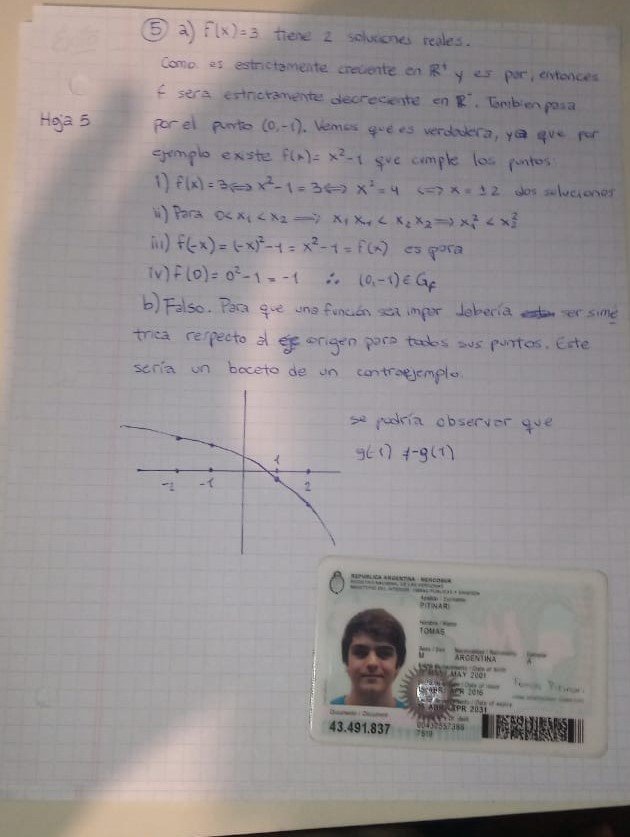 ⑤ a) f(x)=3 tiene 2 soluciones reales.
Como es estrictamente creciente en ℝ⁺ y es par, entonces
f sera estrictamente decreciente en ℝ⁻. Tambien pasa
Hoja 5
por el punto (0,-1). Vemos que es verdadera, ya que por
ejemplo existe f(x)= x²-1 que cumple los puntos:
i) f(x)=3 ⟺ x²-1=3 ⟺ x²=4 ⟺ x=±2 dos soluciones
ii) Para 0<x₁<x₂ ⟹ x₁x₁<x₂x₂ ⟹ x₁²<x₂²
iii) f(-x)=(-x)²-1=x²-1=f(x) es para
iv) f(0)=0²-1=-1 ∴ (0,-1)∈Gf
b) Falso. Para que una función sea impar debería ser simé
trica respecto al origen para todos sus puntos. Este
sería un boceto de un contraejemplo.
se podría observar que
g(-1) ≠ -g(1)
-2 -1 1 2
REPUBLICA ARGENTINA - MERCOSUR
REGISTRO NACIONAL DE LAS PERSONAS
MINISTERIO DEL INTERIOR, OBRAS PÚBLICAS Y VIVIENDA
Apellido / Surname
PITINARI
Nombre / Name
TOMAS
Sexo / Sex Nacionalidad / Nationality Ejemplar
M ARGENTINA A
Fecha de nacimiento / Date of birth
MAY 2001
/ Date of issue
APR 2016
/ Date of expiry
APR 2031
Documento / Document
43.491.837
7819